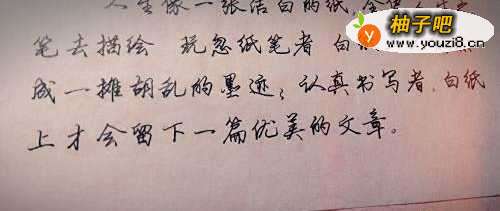 人生像一张洁白的纸,全凭
笔去描绘 玩忽纸笔者 白
成一摊胡乱的墨迹;认真书写者,白纸
上才会留下一篇优美的文章。
柚子吧
www.youzi8.cn